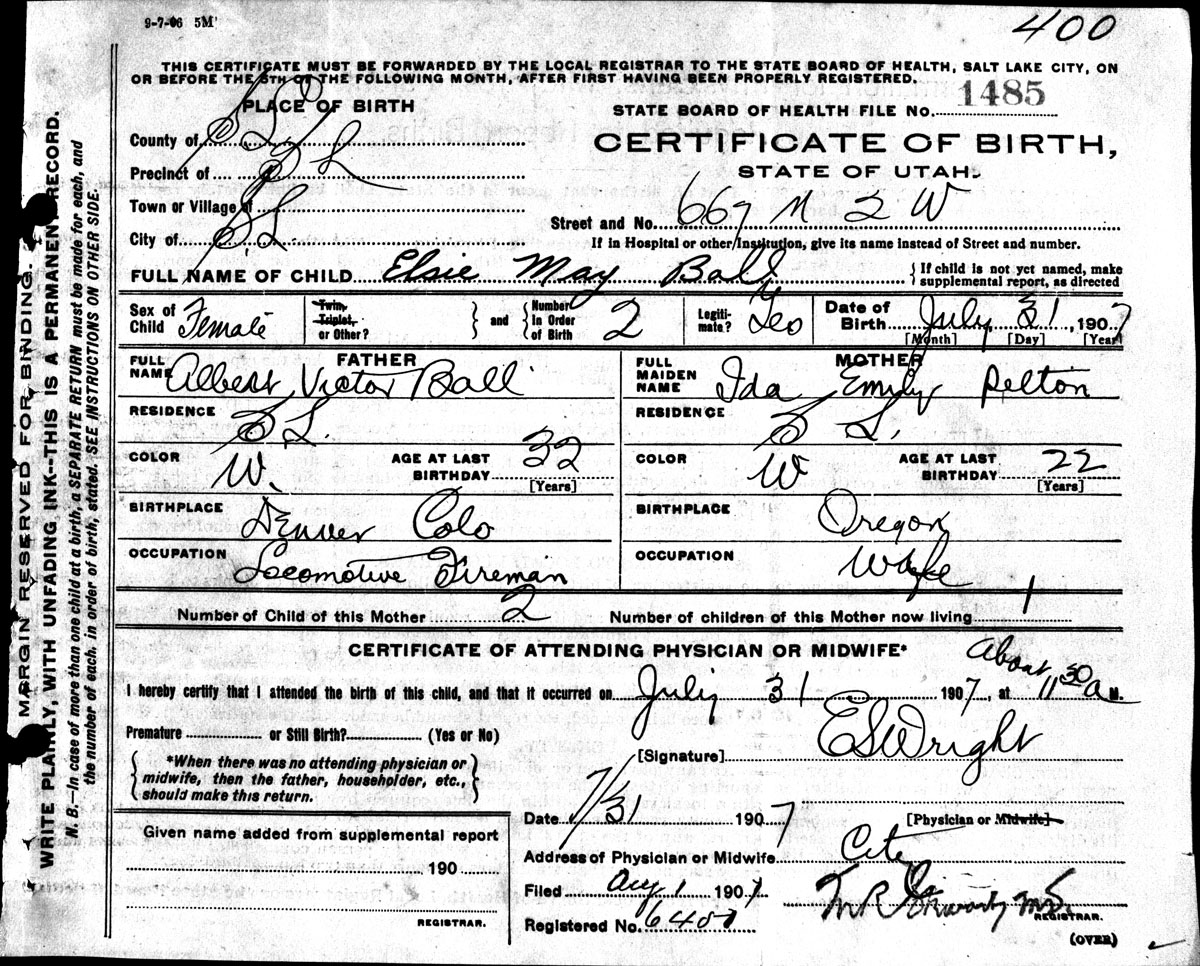 9-7-06 5M
400
THIS CERTIFICATE MUST BE FORWARDED BY THE LOCAL REGISTRAR TO THE STATE BOARD OF HEALTH, SALT LAKE CITY, ON
OR BEFORE THE 5TH OF THE FOLLOWING MONTH, AFTER FIRST HAVING BEEN PROPERLY REGISTERED.
PLACE OF BIRTH
STATE BOARD OF HEALTH FILE No. 1485
County of S L
CERTIFICATE OF BIRTH,
Precinct of S L
STATE OF UTAH.
Town or Village of
Street and No. 667 N 2 W
City of S L
If in Hospital or other Institution, give its name instead of Street and number.
FULL NAME OF CHILD Elsie May Ball
{ If child is not yet named, make supplemental report, as directed
Sex of Child Female
Twin, Triplet, or Other? } and { Number in Order of Birth 2
Legitimate? Yes
Date of Birth July 31, 1907
[Month] [Day] [Year]
FATHER
FULL NAME Albert Victor Ball
RESIDENCE S L.
COLOR W. AGE AT LAST BIRTHDAY 32
[Years]
BIRTHPLACE Denver Colo
OCCUPATION Locomotive Fireman
MOTHER
FULL MAIDEN NAME Ida Emily Pelton
RESIDENCE S L.
COLOR W AGE AT LAST BIRTHDAY 22
[Years]
BIRTHPLACE Oregon
OCCUPATION Wife
Number of Child of this Mother 2 Number of children of this Mother now living 1
CERTIFICATE OF ATTENDING PHYSICIAN OR MIDWIFE*
I hereby certify that I attended the birth of this child, and that it occurred on July 31 1907, at About 11 30 a M.
Premature or Still Birth? (Yes or No)
{ *When there was no attending physician or
midwife, then the father, householder, etc.,
should make this return. }
[Signature] E S Wright
Date 7/31 1907 [Physician or Midwife]
Given name added from supplemental report
190
REGISTRAR.
Address of Physician or Midwife City
Filed Aug 1 1907
Registered No.
M.D.
REGISTRAR.
(OVER)
MARGIN RESERVED FOR BINDING.
WRITE PLAINLY, WITH UNFADING INK--THIS IS A PERMANENT RECORD.
N. B.—In case of more than one child at a birth, a SEPARATE RETURN must be made for each, and
the number of each, in order of birth, stated. SEE INSTRUCTIONS ON OTHER SIDE.